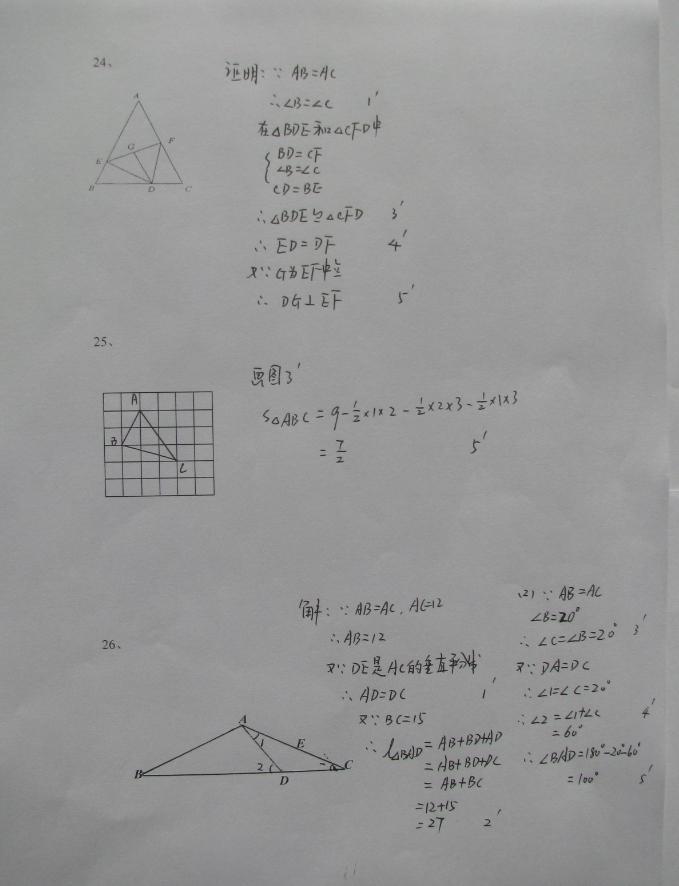 24、
证明：∵ AB=AC
∴∠B=∠C 1'
在△BDE和△CFD中
BD=CF
∠B=∠C
CD=BE
∴△BDE≌△CFD 3'
∴ ED=DF 4'
又∵G为EF中点
∴ DG⊥EF 5'
A
G
F
E
B
D
C
25、
画图3'
S△ABC = 9-1/2×1×2-1/2×2×3-1/2×1×3
= 7/2 5'
A
B
C
26、
解：∵AB=AC，AC=12
∴AB=12
又∵DE是AC的垂直平分线
∴ AD=DC 1'
又∵BC=15
∴ l△BAD = AB+BD+AD
= AB+BD+DC
= AB+BC
=12+15
=27 2'
(2) ∵ AB=AC
∠B=20°
∴∠C=∠B=20° 3'
又∵DA=DC
∴∠1=∠C=20°
∴∠2=∠1+∠C 4'
=60°
∴∠BAD=180°-20°-60°
=100° 5'
A
1
E
B
2
D
C